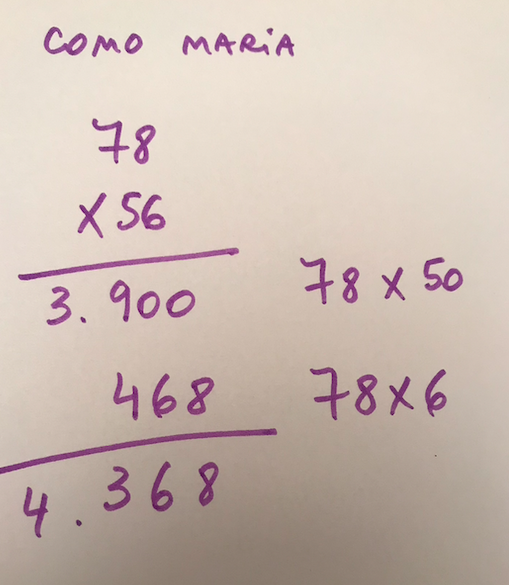 COMO MARiA
78
x 56
3.900 78 x 50
468 78 x 6
4.368